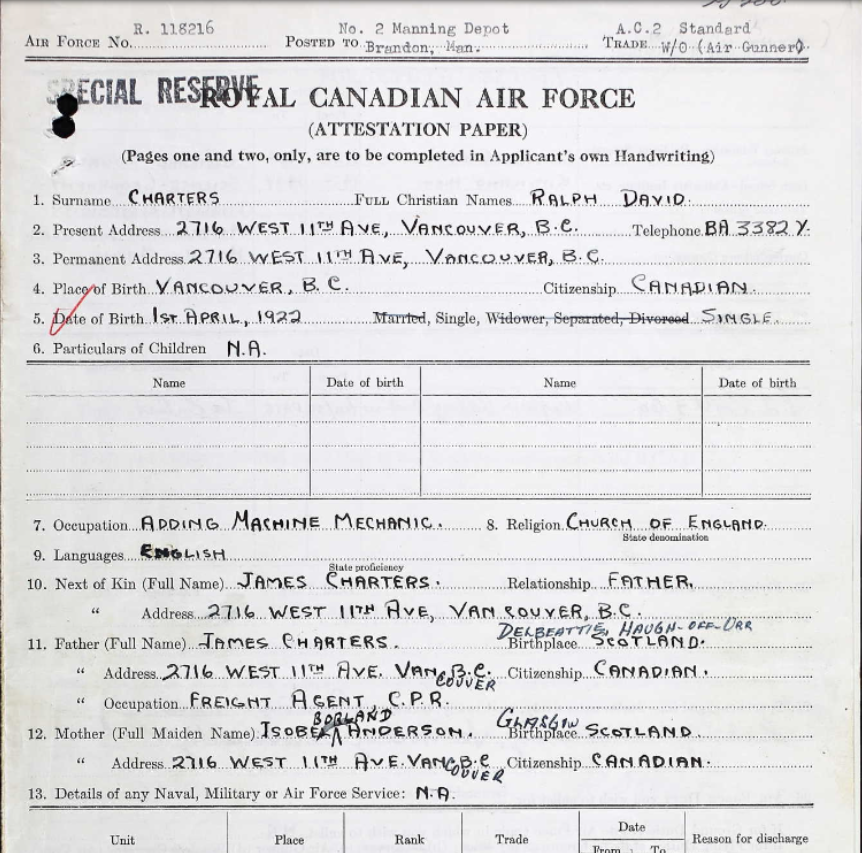 R. 118216 No. 2 Manning Depot A.C.2 Standard
AIR FORCE NO. POSTED TO Brandon, Man. TRADE W/O (Air Gunner)
SPECIAL RESERVE
ROYAL CANADIAN AIR FORCE
(ATTESTATION PAPER)
(Pages one and two, only, are to be completed in Applicant's own Handwriting)
1. Surname CHARTERS FULL Christian Names RALPH DAVID.
2. Present Address 2716 WEST 11TH AVE, VANCOUVER, B.C. Telephone BA 3382 Y.
3. Permanent Address 2716 WEST 11TH AVE, VANCOUVER, B.C.
4. Place of Birth VANCOUVER, B.C. Citizenship CANADIAN.
5. Date of Birth 1ST APRIL, 1922 Married, Single, Widower, Separated, Divorced SINGLE.
6. Particulars of Children N.A.
Name Date of birth Name Date of birth
7. Occupation ADDING MACHINE MECHANIC. 8. Religion CHURCH OF ENGLAND.
State denomination
9. Languages ENGLISH
State proficiency
10. Next of Kin (Full Name) JAMES CHARTERS. Relationship FATHER.
" Address 2716 WEST 11TH AVE, VANCOUVER, B.C.
DELBEATTIE, HAUGH-OFF-URR
11. Father (Full Name) JAMES CHARTERS. Birthplace SCOTLAND.
" Address 2716 WEST 11TH AVE. VANCOUVER B.C. Citizenship CANADIAN.
" Occupation FREIGHT AGENT, C.P.R.
BORLAND GLASGOW
12. Mother (Full Maiden Name) ISOBEL ANDERSON. Birthplace SCOTLAND
" Address 2716 WEST 11TH AVE. VANCOUVER B.C Citizenship CANADIAN.
13. Details of any Naval, Military or Air Force Service: N.A.
Unit Place Rank Trade Date Reason for discharge
From To